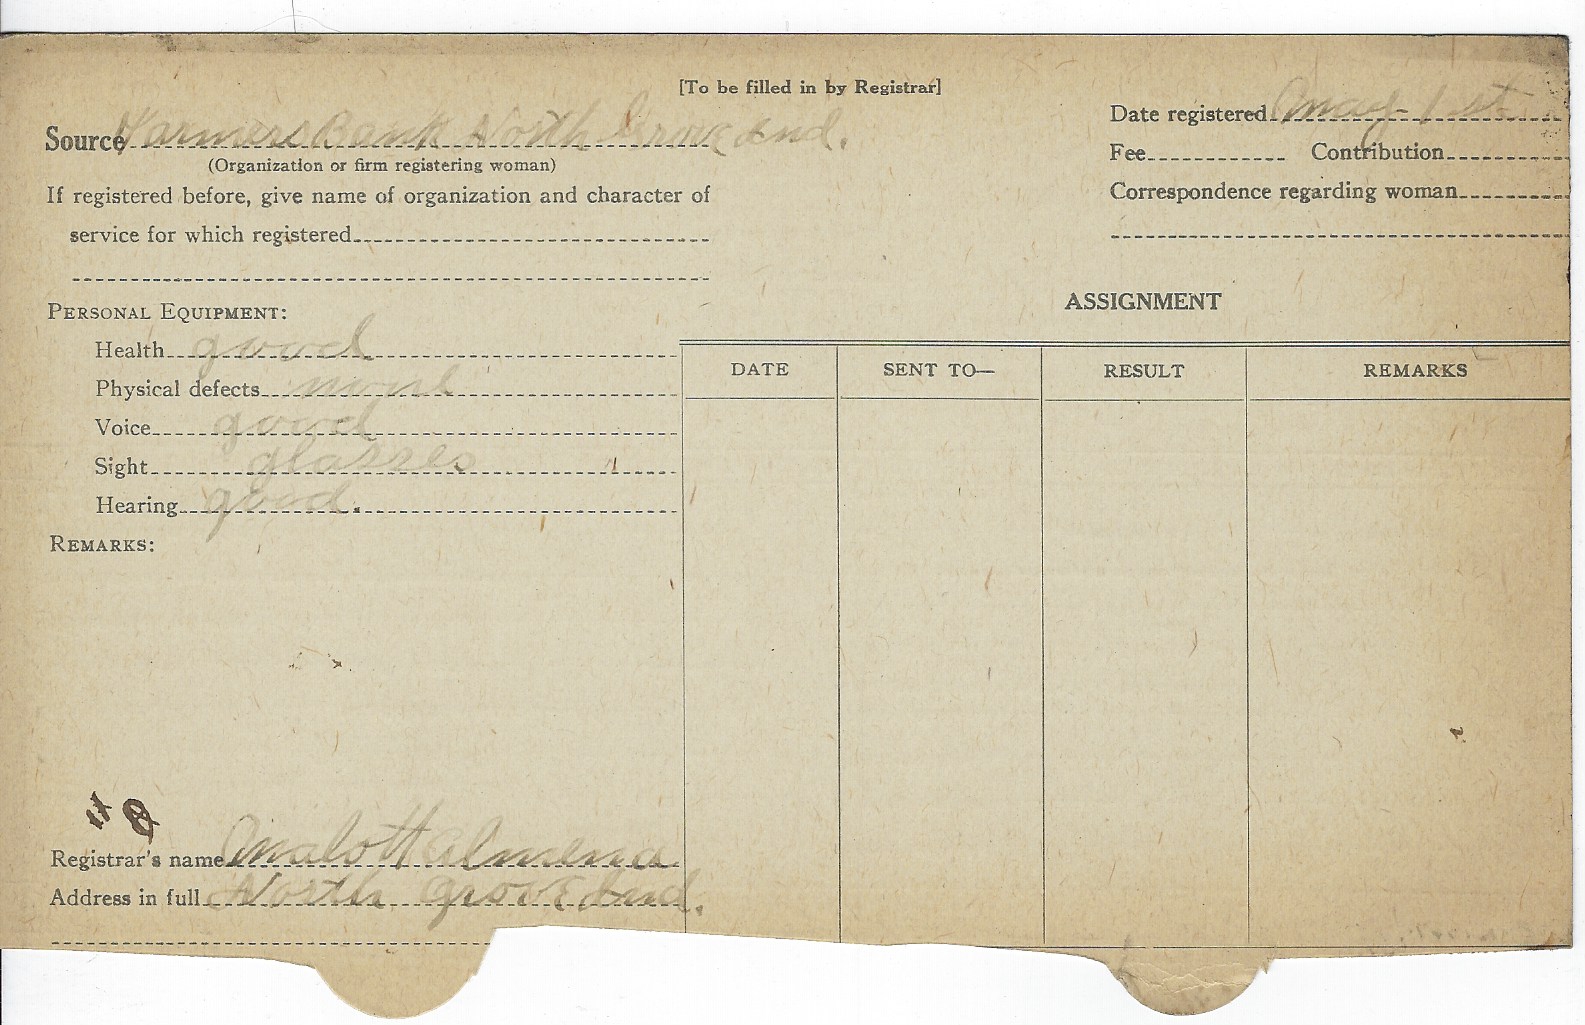 [To be filled in by Registrar]
Source Farmers Bank North Grove Ind.
(Organization or firm registering woman)
If registered before, give name of organization and character of
service for which registered
Date registered May 1st
Fee Contribution
Correspondence regarding woman
PERSONAL EQUIPMENT:
Health good
Physical defects none
Voice good
Sight glasses
Hearing good.
REMARKS:
ASSIGNMENT
DATE SENT TO— RESULT REMARKS
Registrar's name Malott Almena
Address in full North Grove Ind.